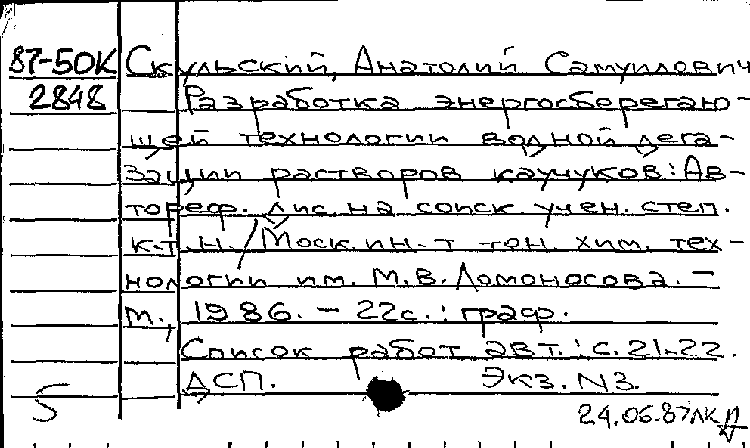 87-50К Скульский, Анатолий Самуилович
2848 Разработка энергосберегаю-
щей технологии водной дега-
зации растворов каучуков: Ав-
тореф. дис. на соиск учен. степ.
к.т.н. / Моск. ин-т тон. хим. тех-
нологии им. М.В. Ломоносова. -
М., 1986. - 22с. : граф.
Список работ авт.: с. 21-22.
ДСП. Экз. N3.
5 24.06.87